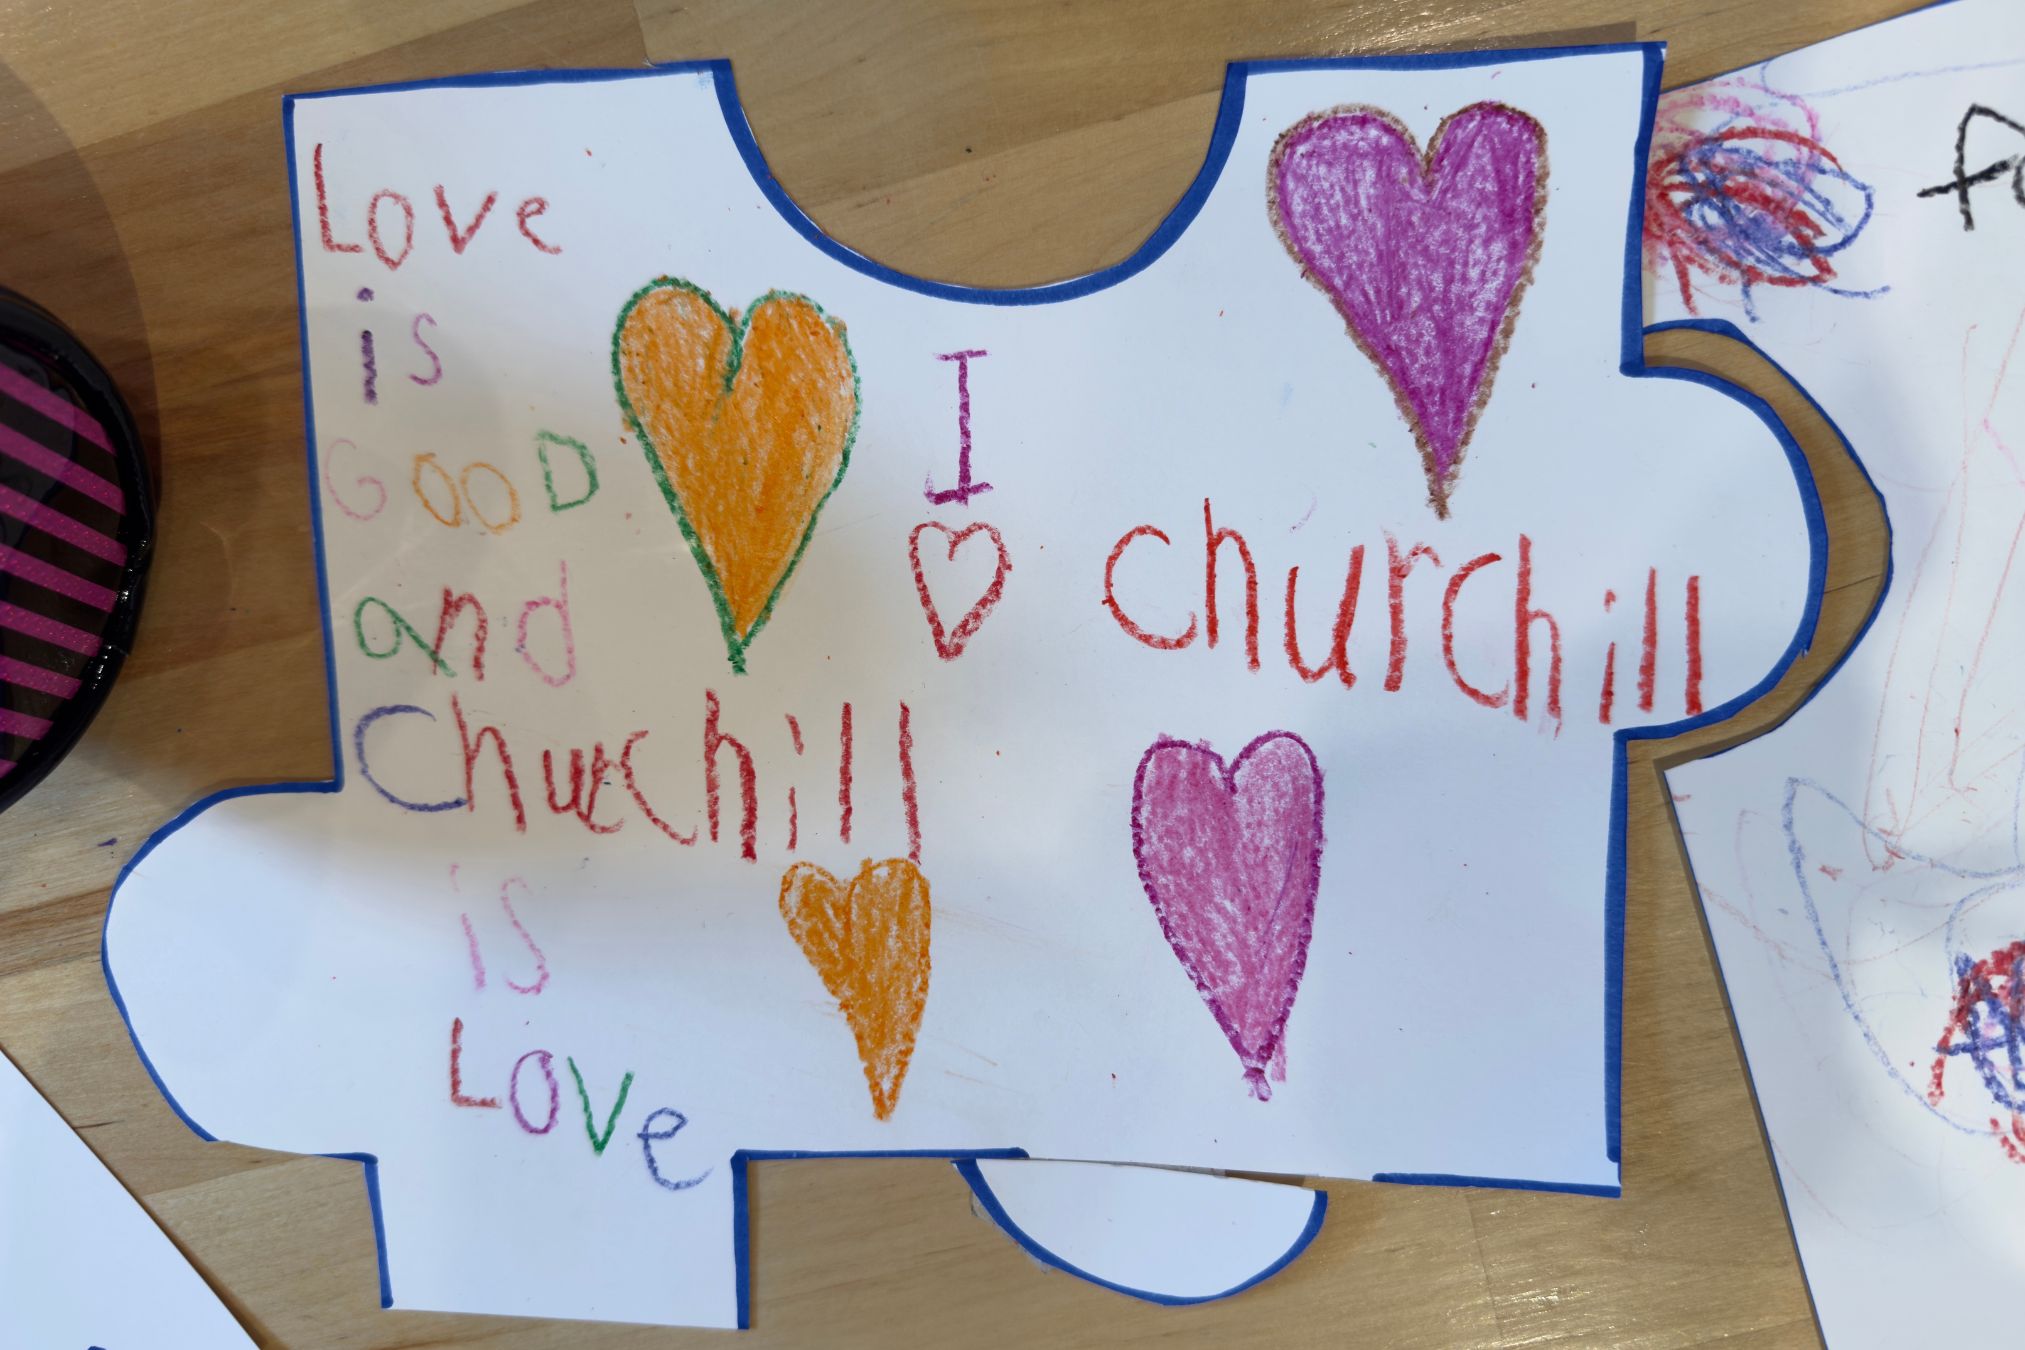 Love
is
GOOD
and
Churchill
is
Love
I
♡
churchill